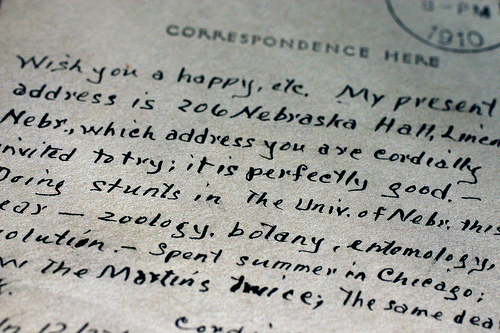 8-PM
1910
CORRESPONDENCE HERE
Wish you a happy, etc. My present
address is 206 Nebraska Hall, Lincoln
Nebr., which address you are cordially
invited to try; it is perfectly good. —
Doing stunts in The Univ. of Nebr. this
ear — zoology, botany, entomology,
olution. — Spent summer in Chicago;
The Martins twice; The same dea
In 12
Cordi